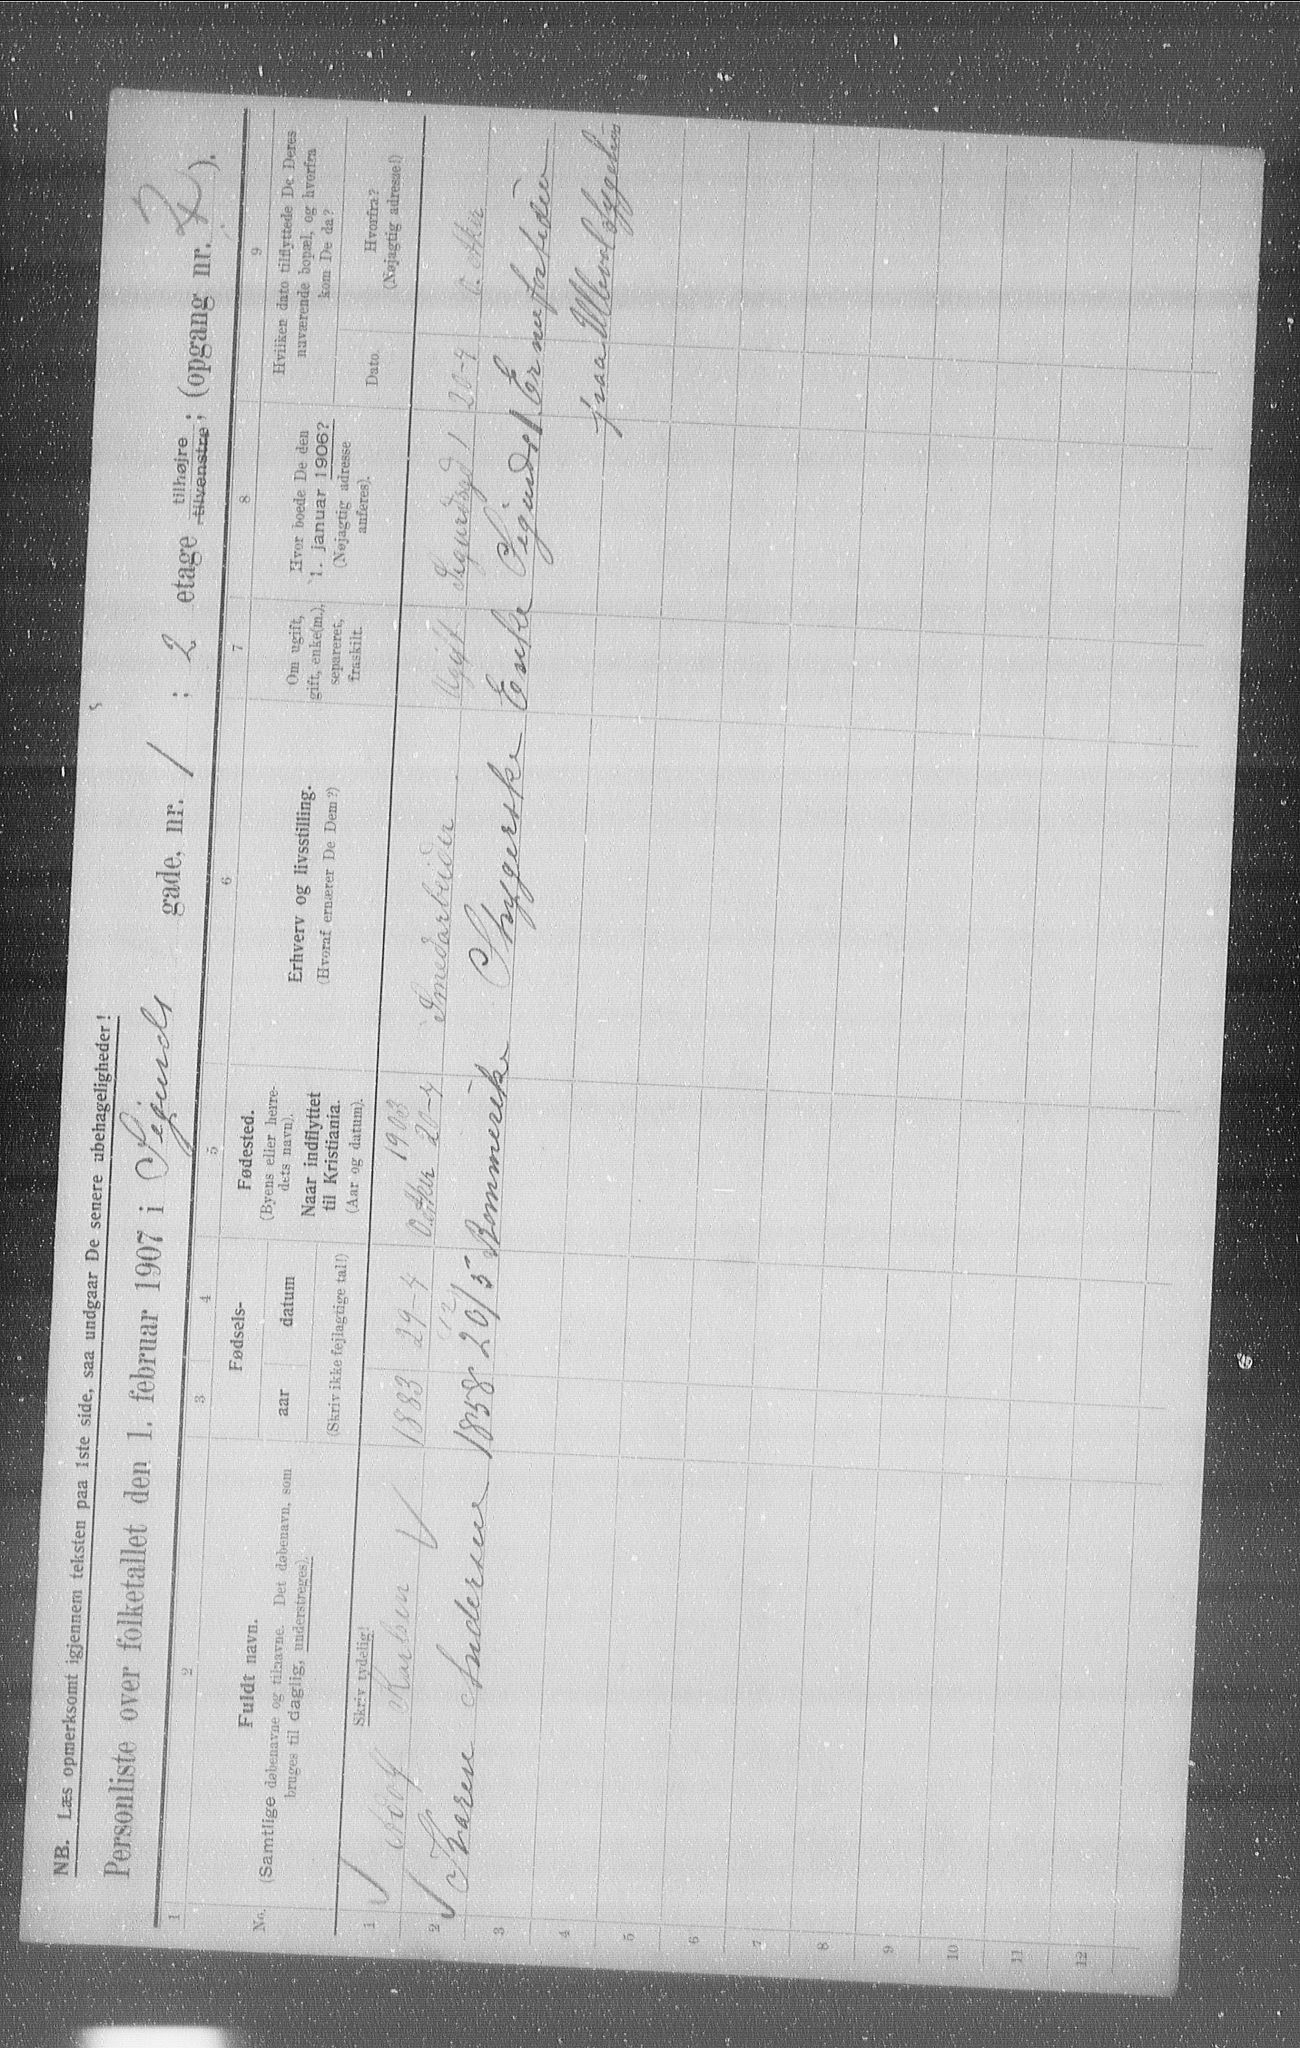 NB. Læs opmerksomt igjennem teksten paa 1ste side, saa undgaar De senere ubehageligheder!
Personliste over folketallet den 1. februar 1907 i Sigurds gade, nr. 1 ; 2 etage tilhøjre tilvenstre; (opgang nr. ).
1 2 3 4 5 6 7 8 9
No.
Fuldt navn.
(Samtlige døbenavne og tilnavne. Det døbenavn, som
bruges til daglig, understreges).
Skriv tydelig!
Fødsels-
aar datum
(Skriv ikke fejlagtige tal!)
Fødested.
(Byens eller herre-
dets navn).
Naar indflyttet
til Kristiania.
(Aar og datum).
Erhverv og livsstilling.
(Hvoraf ernærer De Dem?)
Om ugift,
gift, enke(m.),
separeret,
fraskilt.
Hvor boede De den
1. januar 1906?
(Nøjagtig adresse
anføres).
Hvilken dato tilflyttede De Deres
nuværende bopæl, og hvorfra
kom De da?
Dato.
Hvorfra?
(Nøjagtig adresse!)
1 Adolf Karlsen 1883 29-4 Ø. Aker 1903 20-4 Smedarbeider Ugift Sigurdsgd 1 20-4 Ø. Aker
2 Karen Andersen 1838 20/5 Rommerike Enke Sigurdsg 1
3 fraa
4
5
6
7
8
9
10
11
12